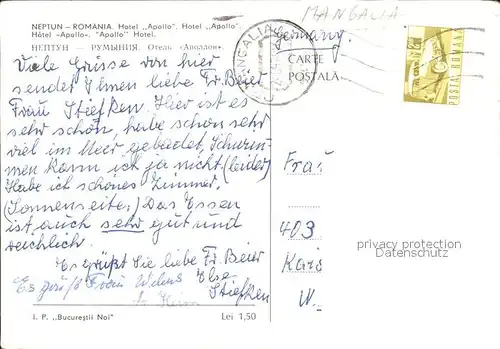 NEPTUN – ROMANIA. Hotel „Apollo". Hotel „Apollo".
Hôtel «Apollo». "Apollo" Hotel.
НЕПТУН – РУМЫНИЯ. Отель «Аполлон».
MANGALIA
Germany
CARTE
POSTALĂ
MANGALIA
POSTA ROMANA
Viele Grüsse von hier
sendet Ihnen liebe Fr. Beier
Frau Stiefken. Hier ist es
sehr schön, habe schon sehr
viel im Meer gebadet, Schwim-
men kann ich ja nicht (leider)
Habe ich schönes Zimmer,
(Sonnenseite.) Das Essen
ist auch sehr gut und
reichlich.
Es grüßt Sie liebe Fr. Beier
Else
Stiefken
Es grüßt Frau
Frau
403
W.
protection watermark
Datenschutz
I. P. „Bucureştii Noi"
Lei 1,50